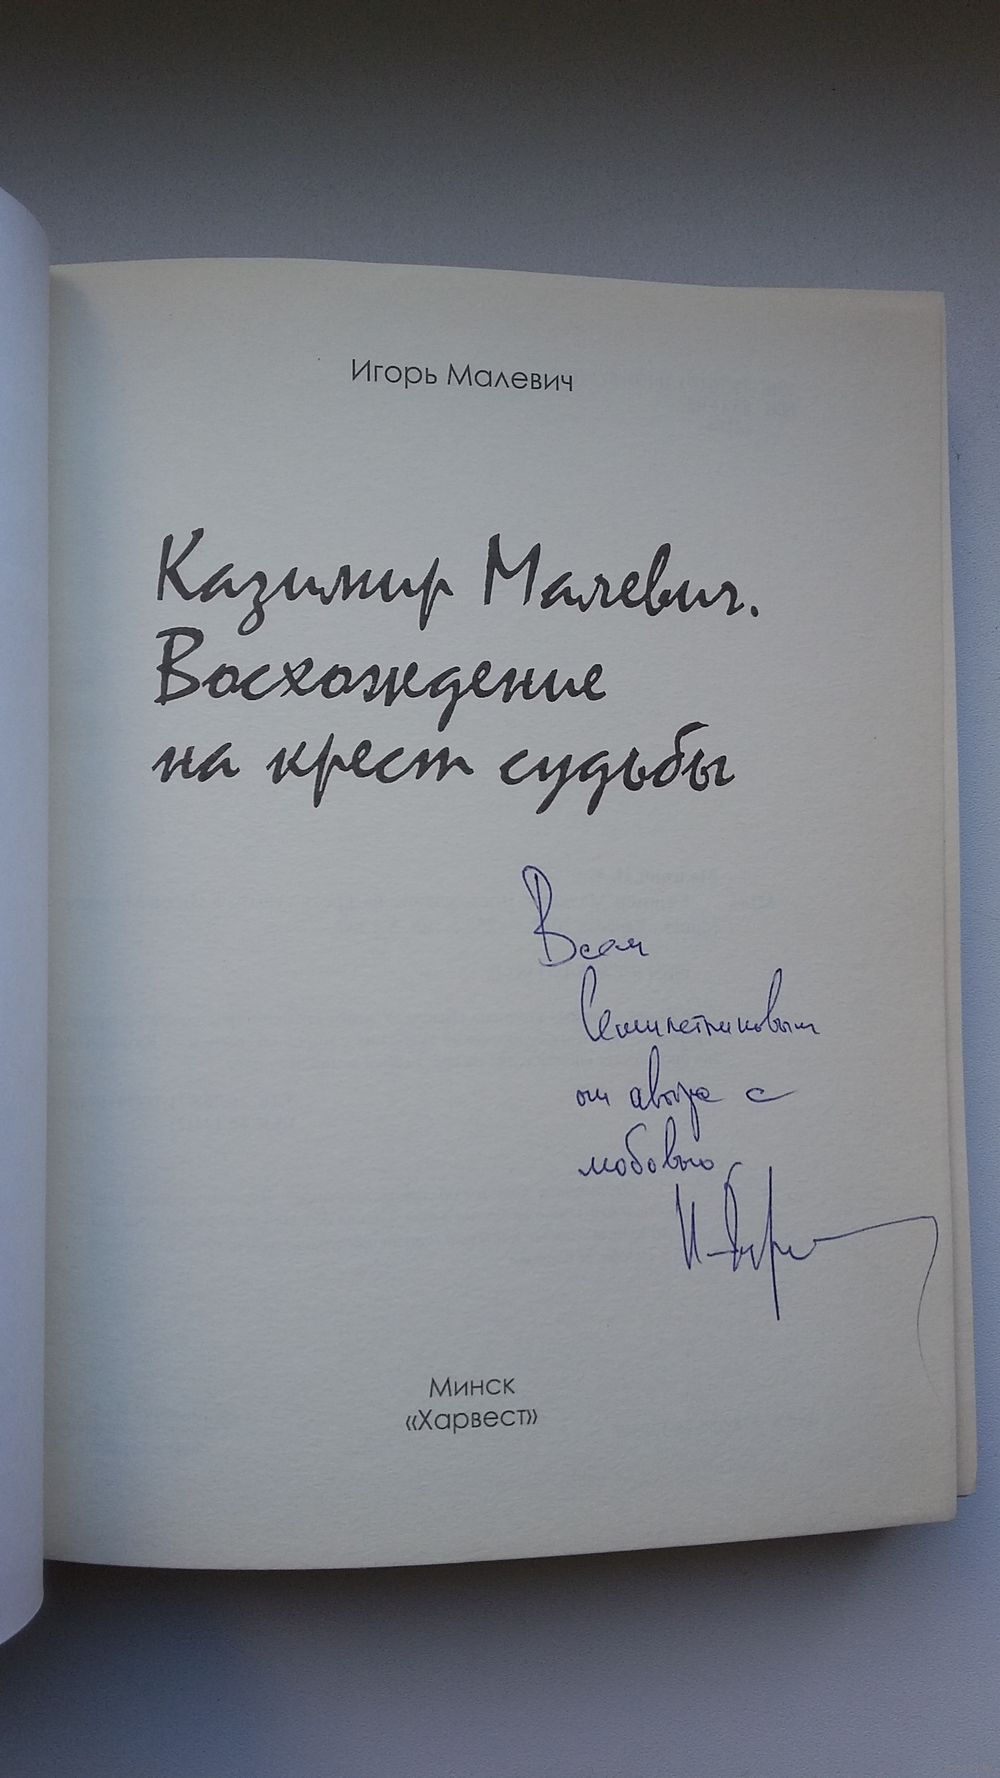 Игорь Малевич
Казимир Малевич.
Восхождение
на крест судьбы
Всем
Семилетниковым
от автора с
любовью
Минск
«Харвест»